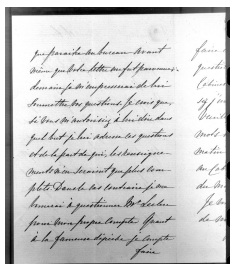 que paraître au bureau avant
même que votre lettre me fut parvenue.
demain je m'empresserai de lui
soumettre vos questions. Je crois que,
si vous m'autorisiez à lui dire dans
quel but je lui adresse ces questions
et de la part de qui, les renseigne-
ments n'en seraient que plus com-
plets. Dans le cas contraire je me
bornerai à questionner Mr Leclerc
pour mon propre compte. Quant
à la fameuse dépêche, je compte
faire
faire
questi
Cabine
mots
matin
au Cab
du M
Je m
de m